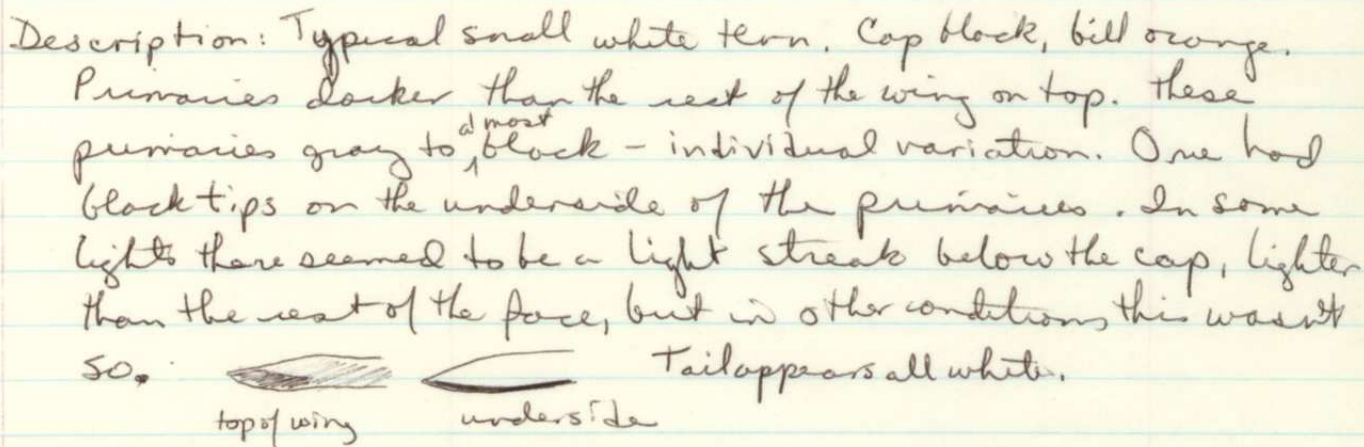 Description: Typical small white tern. Cap black, bill orange.
Primaries darker than the rest of the wing on top. These
primaries gray to almost black - individual variation. One had
black tips on the underside of the primaries. In some
lights there seemed to be a light streak below the cap, lighter
than the rest of the face, but in other conditions this wasn't
so. Tail appears all white.
top of wing underside